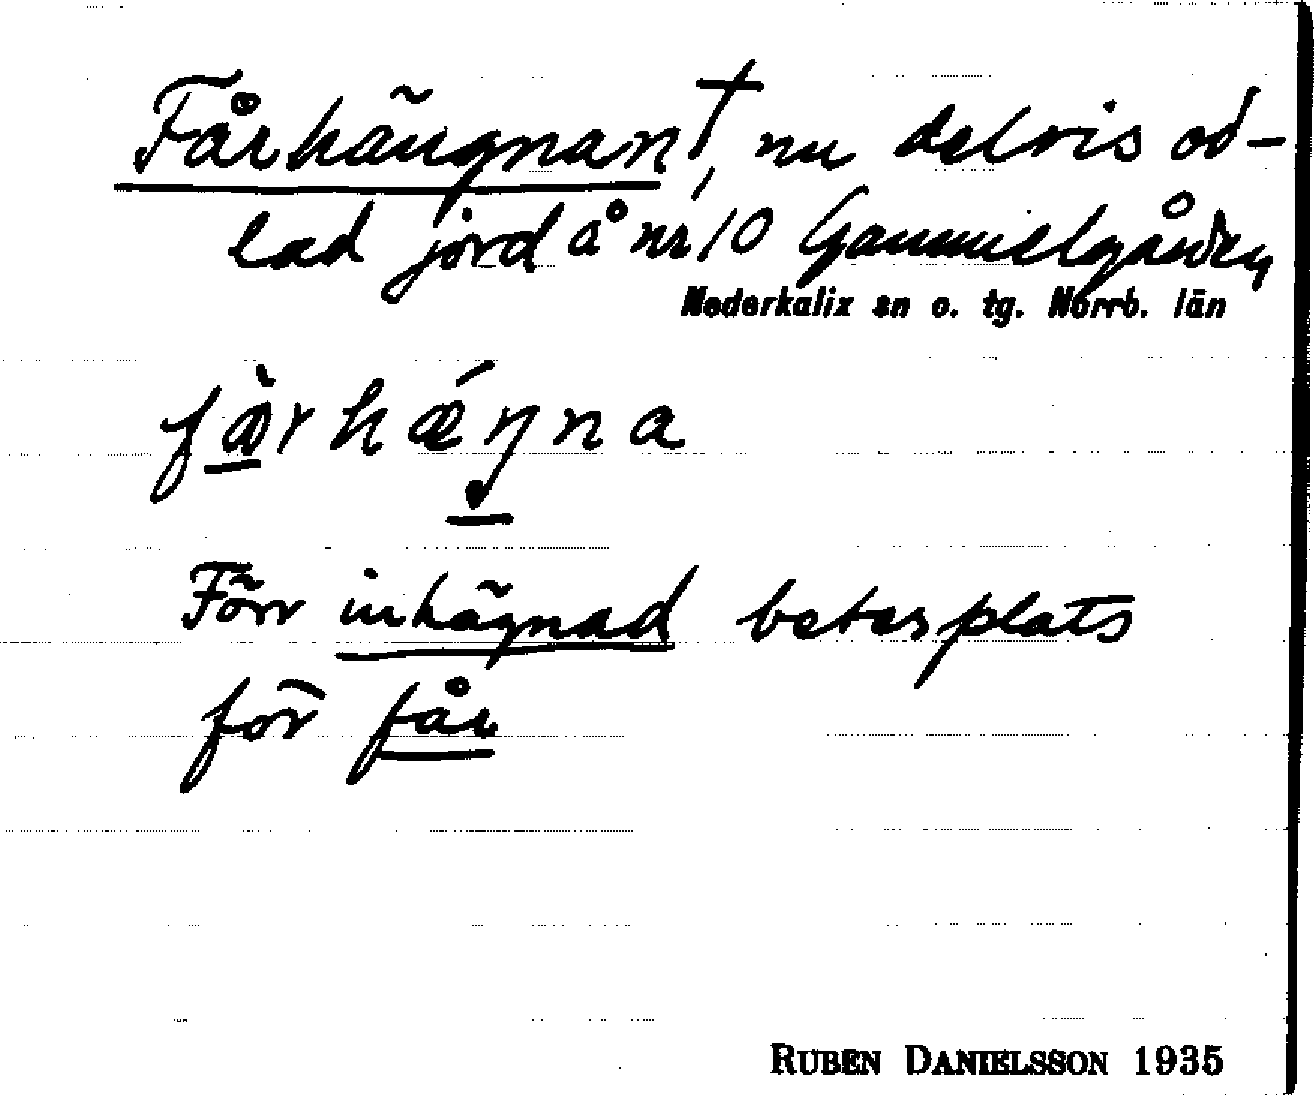 Fårhängnan†, nu delvis od-
lad jord å nr 10 Gammelgården
Nederkalix sn o. tg. Norrb. län
fàrhǽŋna
Förr inhägnad betesplats
för får
RUBEN DANIELSSON 1935